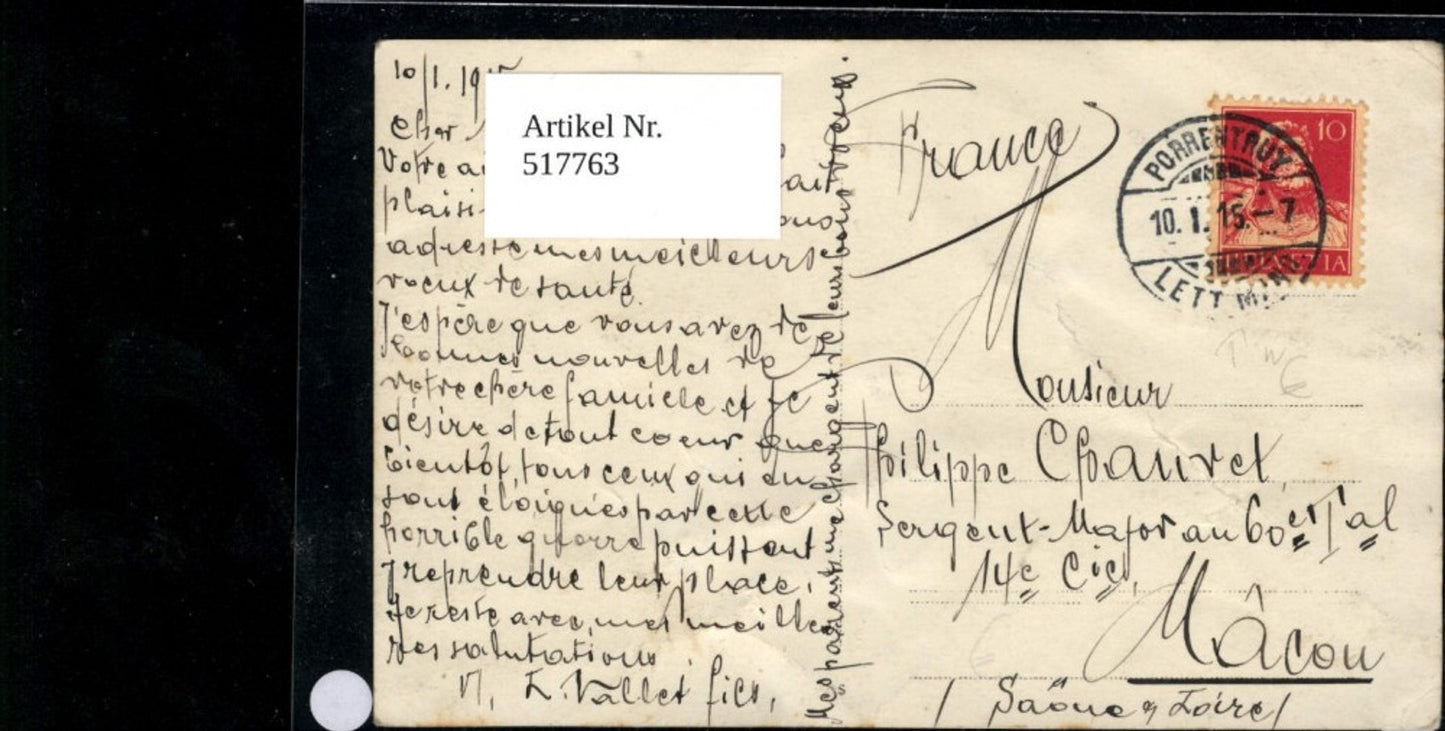 10/1. 1915
Cher
Votre
plaisi
adresse mes meilleurs
voeux de santé.
J'espère que vous avez de
bonnes nouvelles de
votre chère famille et je
désire de tout coeur que
bientôt, tous ceux qui en
sont éloignés par cette
horrible guerre puissent
y reprendre leur place.
Je reste avec mes meilleu
res salutations
L. Vallet fils,
Mes parents me chargent de leurs bons voeux.
Artikel Nr.
517763
France
PORRENTRUY
10. I. 15. – 7
LETT
10
Monsieur
Philippe Chauvet
Sergent-Major au 60e Tal
14e Cie,
Mâcon
(Saône & Loire)